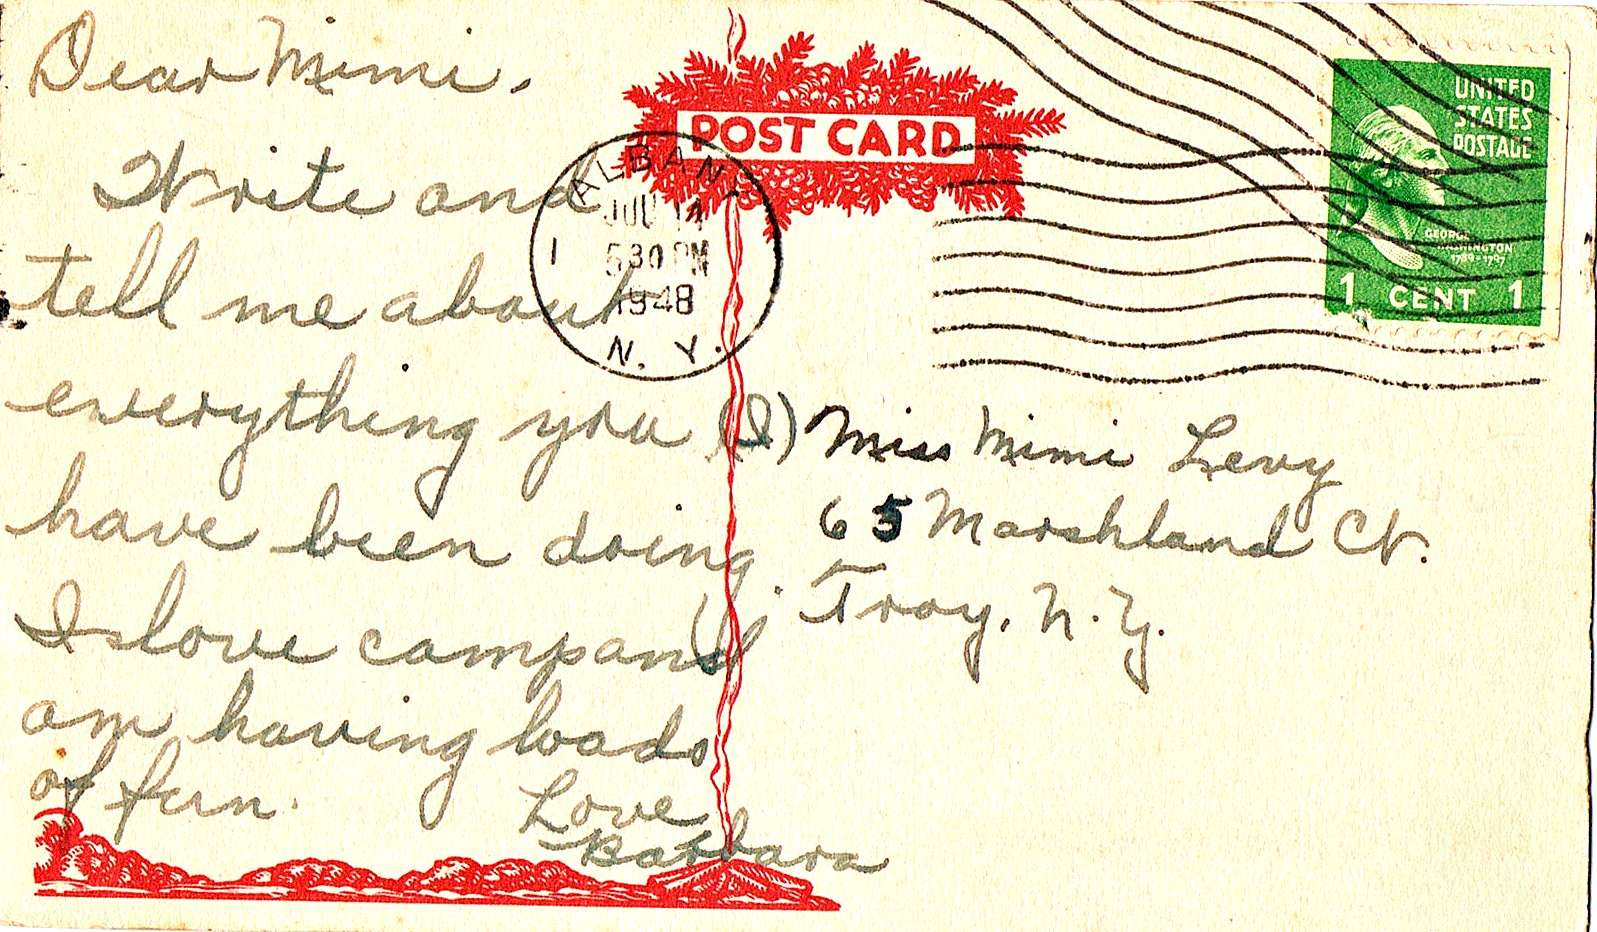 Dear Mimi.
Write and
tell me about
everything you (I)
have been doing.
I love camp and
am having loads
of fun.
Love
Barbara
POST CARD
ALBANY
14
5 30 PM
1948
N. Y.
1
UNITED
STATES
POSTAGE
GEORGE
WASHINGTON
1789-1797
1 CENT 1
Miss Mimi Levy
65 Marshland Ct.
Troy, N. Y.